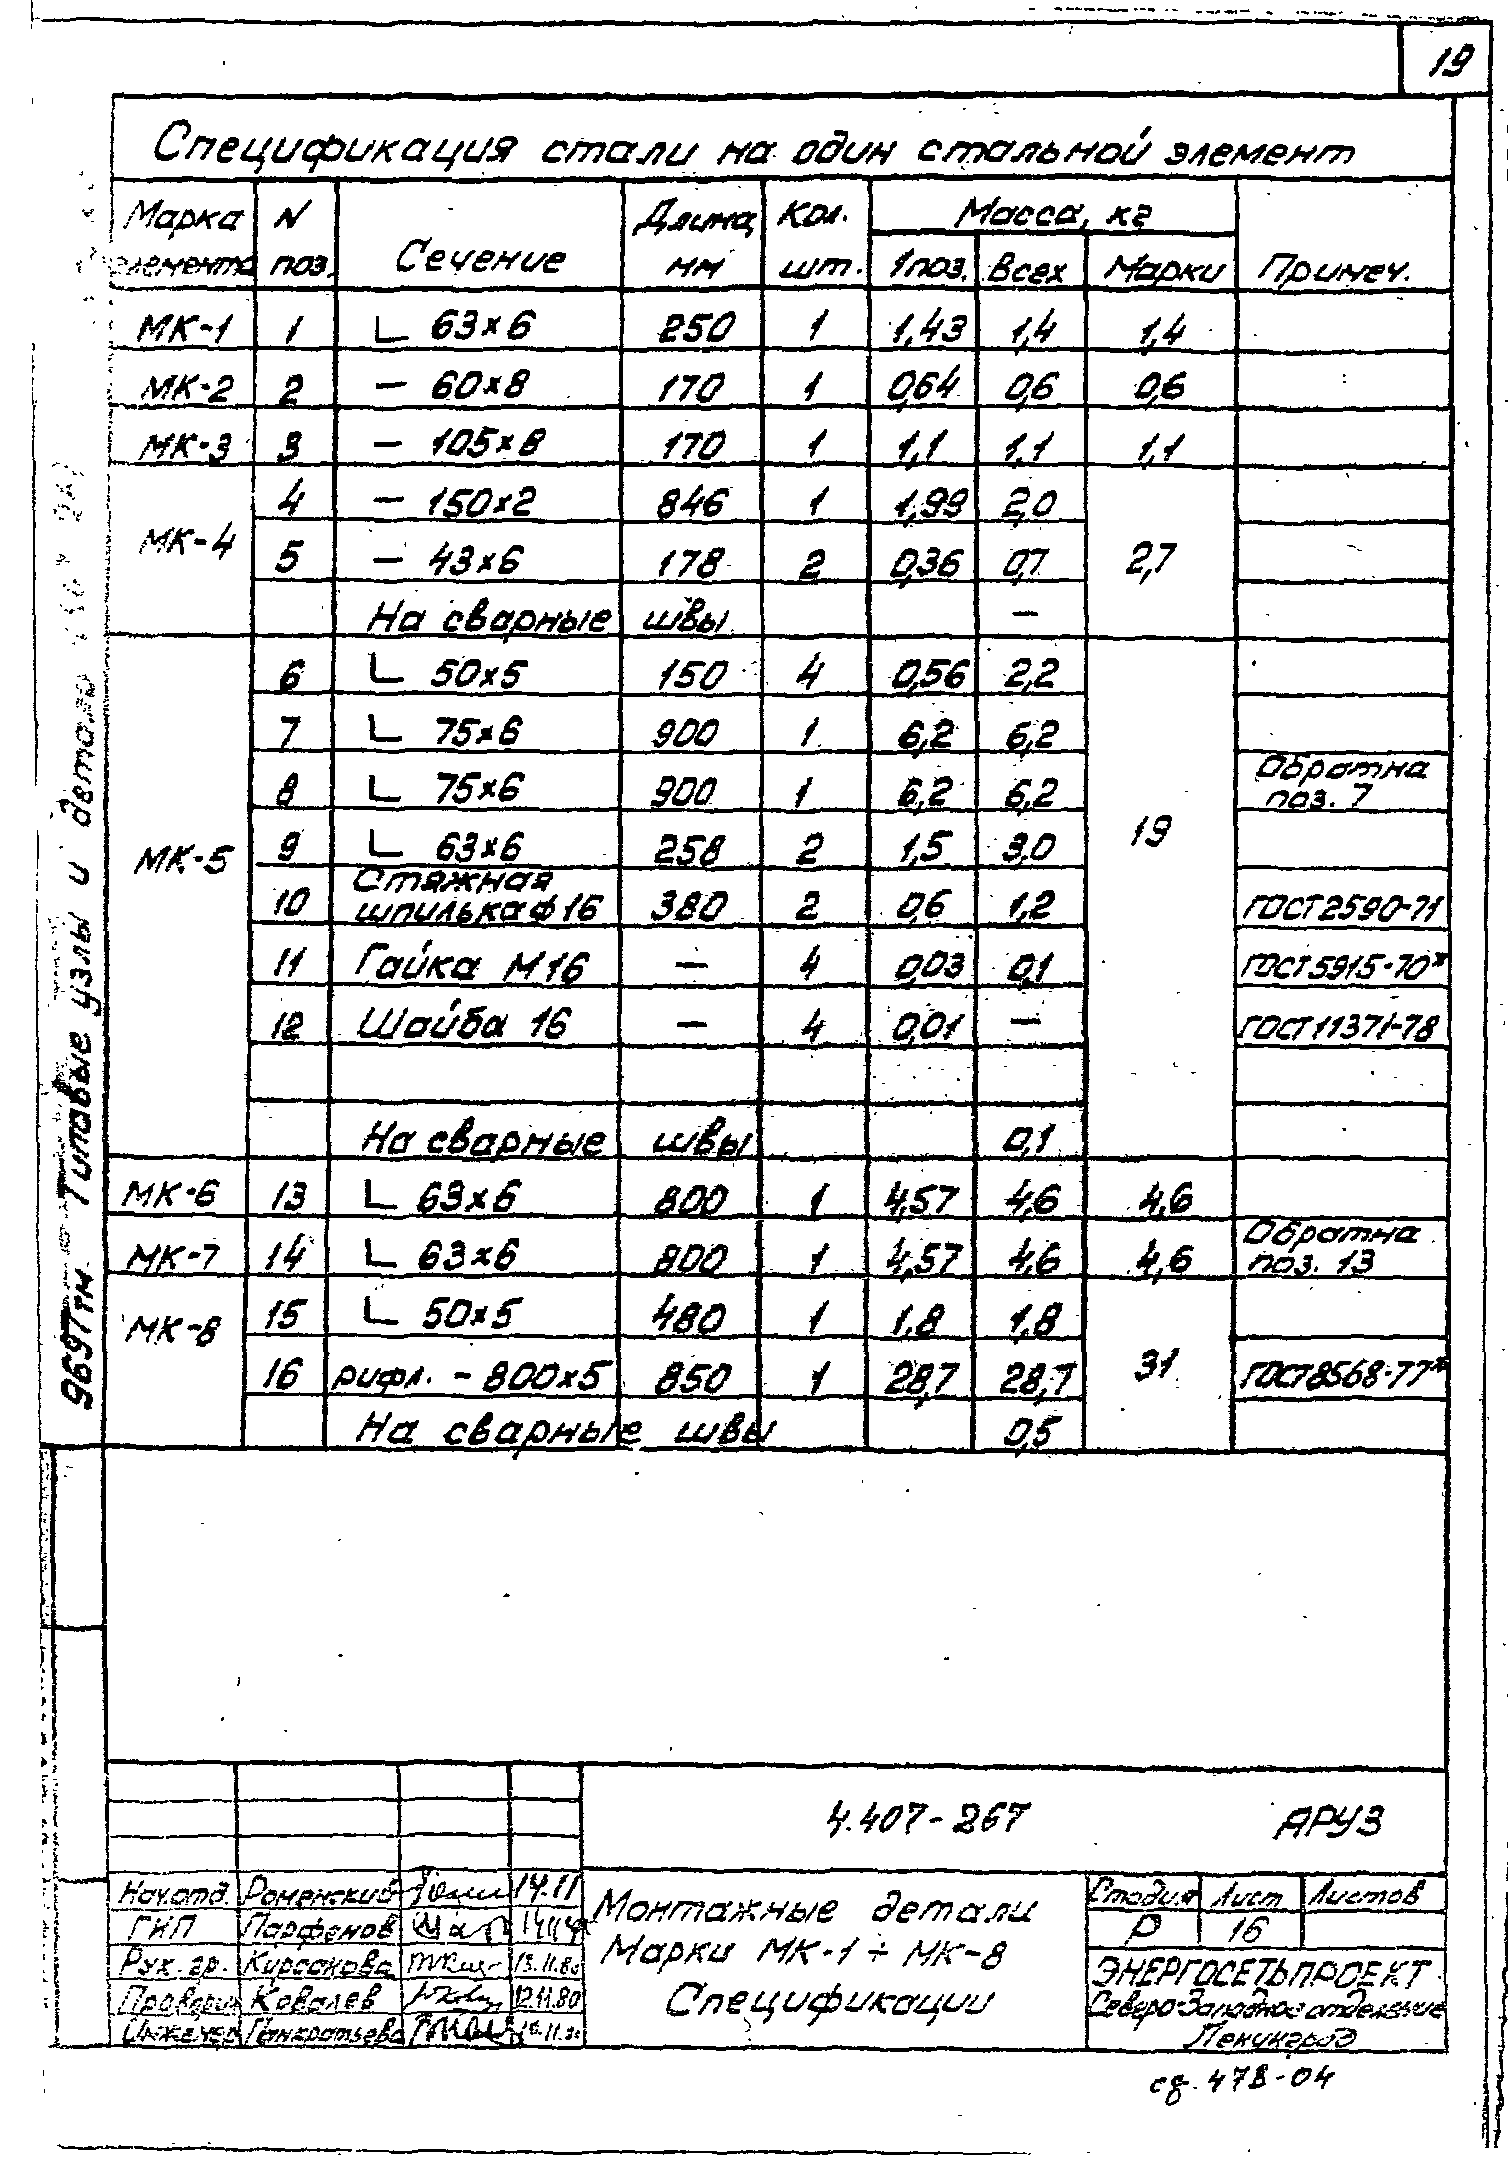 19
Спецификация стали на один стальной элемент
Марка элемента | N поз. | Сечение | Длина мм | Кол. шт. | Масса, кг | Примеч.
1 поз. | Всех | Марки
МК-1 | 1 | ∟ 63×6 | 250 | 1 | 1,43 | 1,4 | 1,4
МК-2 | 2 | — 60×8 | 170 | 1 | 0,64 | 0,6 | 0,6
МК-3 | 3 | — 105×8 | 170 | 1 | 1,1 | 1,1 | 1,1
МК-4 | 4 | — 150×2 | 846 | 1 | 1,99 | 2,0 | 2,7
5 | — 43×6 | 178 | 2 | 0,36 | 0,7
На сварные швы | —
МК-5 | 6 | ∟ 50×5 | 150 | 4 | 0,56 | 2,2 | 19
7 | ∟ 75×6 | 900 | 1 | 6,2 | 6,2
8 | ∟ 75×6 | 900 | 1 | 6,2 | 6,2 | Обратна поз. 7
9 | ∟ 63×6 | 258 | 2 | 1,5 | 3,0
10 | Стяжная шпилька ф16 | 380 | 2 | 0,6 | 1,2 | ГОСТ 2590-71
11 | Гайка М16 | — | 4 | 0,03 | 0,1 | ГОСТ 5915-70*
12 | Шайба 16 | — | 4 | 0,01 | — | ГОСТ 11371-78
На сварные швы | 0,1
МК-6 | 13 | ∟ 63×6 | 800 | 1 | 4,57 | 4,6 | 4,6
МК-7 | 14 | ∟ 63×6 | 800 | 1 | 4,57 | 4,6 | 4,6 | Обратна поз. 13
МК-8 | 15 | ∟ 50×5 | 480 | 1 | 1,8 | 1,8 | 31
16 | рифл. - 800×5 | 850 | 1 | 28,7 | 28,7 | ГОСТ 8568-77*
На сварные швы | 0,5
9697тм Типовые узлы и детали
4.407-267 АРУЗ
Нач.отд. Роменский 14.11
ГИП Парфенов
Рук. гр. Кирсанова 13.11.80
Проверил Ковалев 12.11.80
Инженер Панкратьева
Монтажные детали
Марки МК-1 ÷ МК-8
Спецификации
Стадия Лист Листов
Р 16
ЭНЕРГОСЕТЬПРОЕКТ
Северо-Западное отделение
Ленинград
сф. 478-04